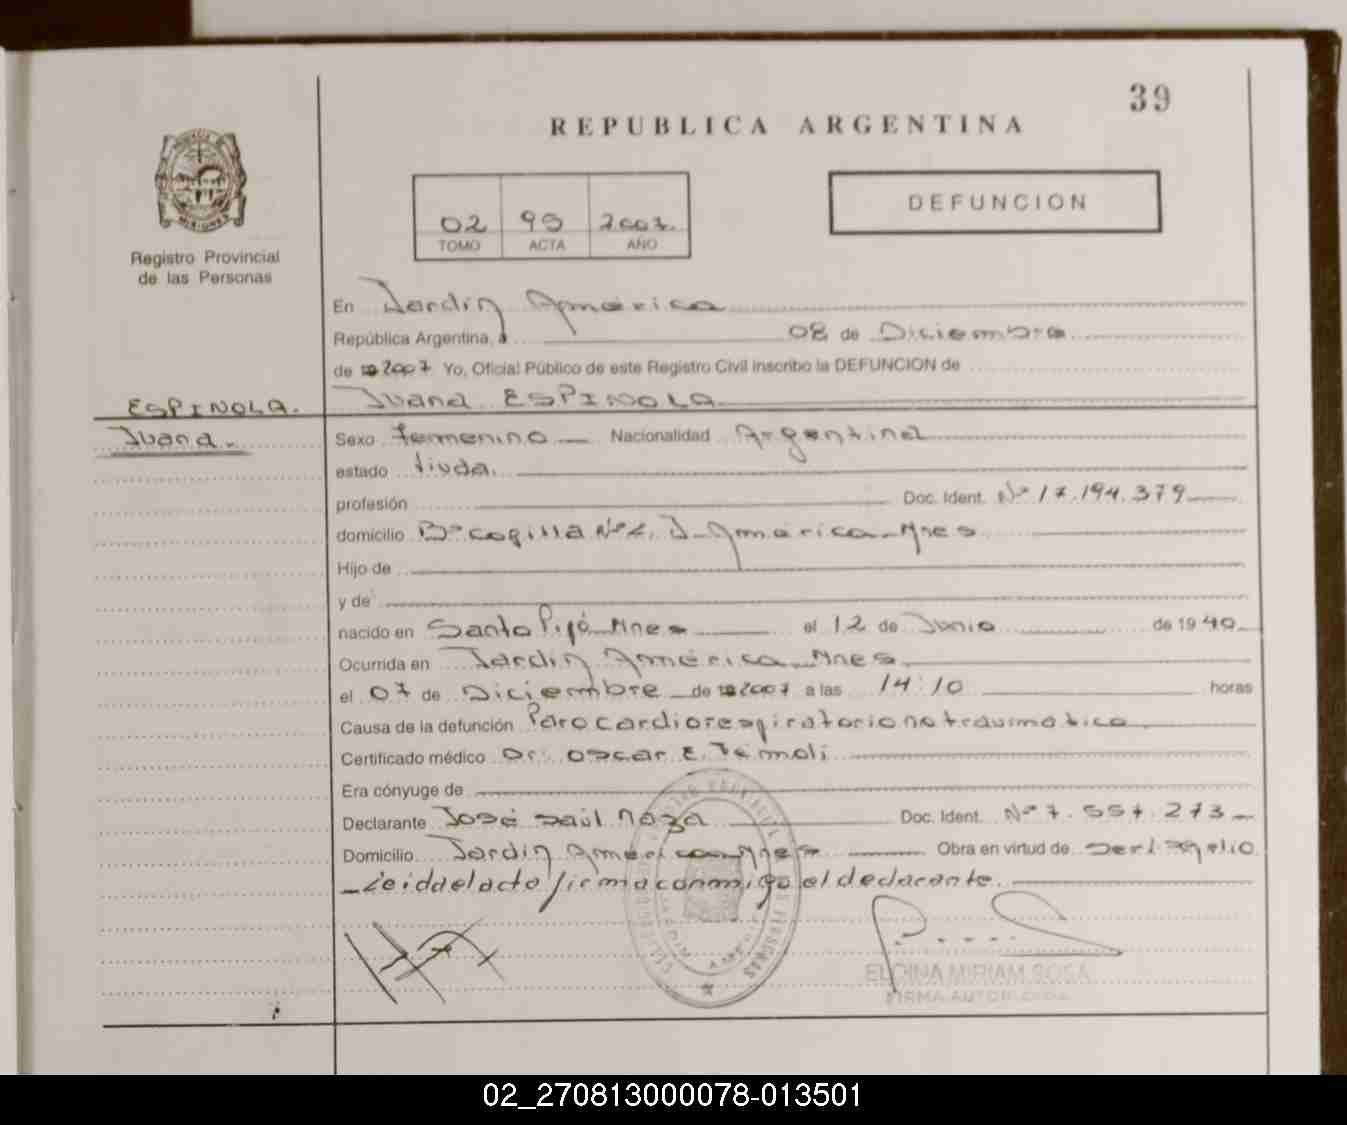 39
REPUBLICA ARGENTINA
DEFUNCION
02 95 2007.
TOMO ACTA AÑO
Registro Provincial
de las Personas
En Jardín América
República Argentina, a 08 de Diciembre
de 2007 Yo, Oficial Público de este Registro Civil inscribo la DEFUNCION de
ESPINOLA. Juana ESPINOLA
Juana.- Sexo femenino Nacionalidad Argentina
estado Viuda.
profesión Doc. Ident. Nº 17.194.379
domicilio Bº J. América Mnes
Hijo de
y de
nacido en Santo Pipó Mnes el 12 de Junio de 1940
Ocurrida en Jardín América Mnes
el 07 de Diciembre de 2007 a las 14:10 horas
Causa de la defunción Paro cardiorespiratorio no traumatico
Certificado médico Dr. Oscar E.
Era cónyuge de
Declarante José Saúl Doc. Ident. Nº 7.557.273
Domicilio Jardín América Mnes Obra en virtud de
Leida el acta firma conmigo el declarante.
ELDINA MIRIAM SOSA
FIRMA AUTORIZADA
02_270813000078-013501